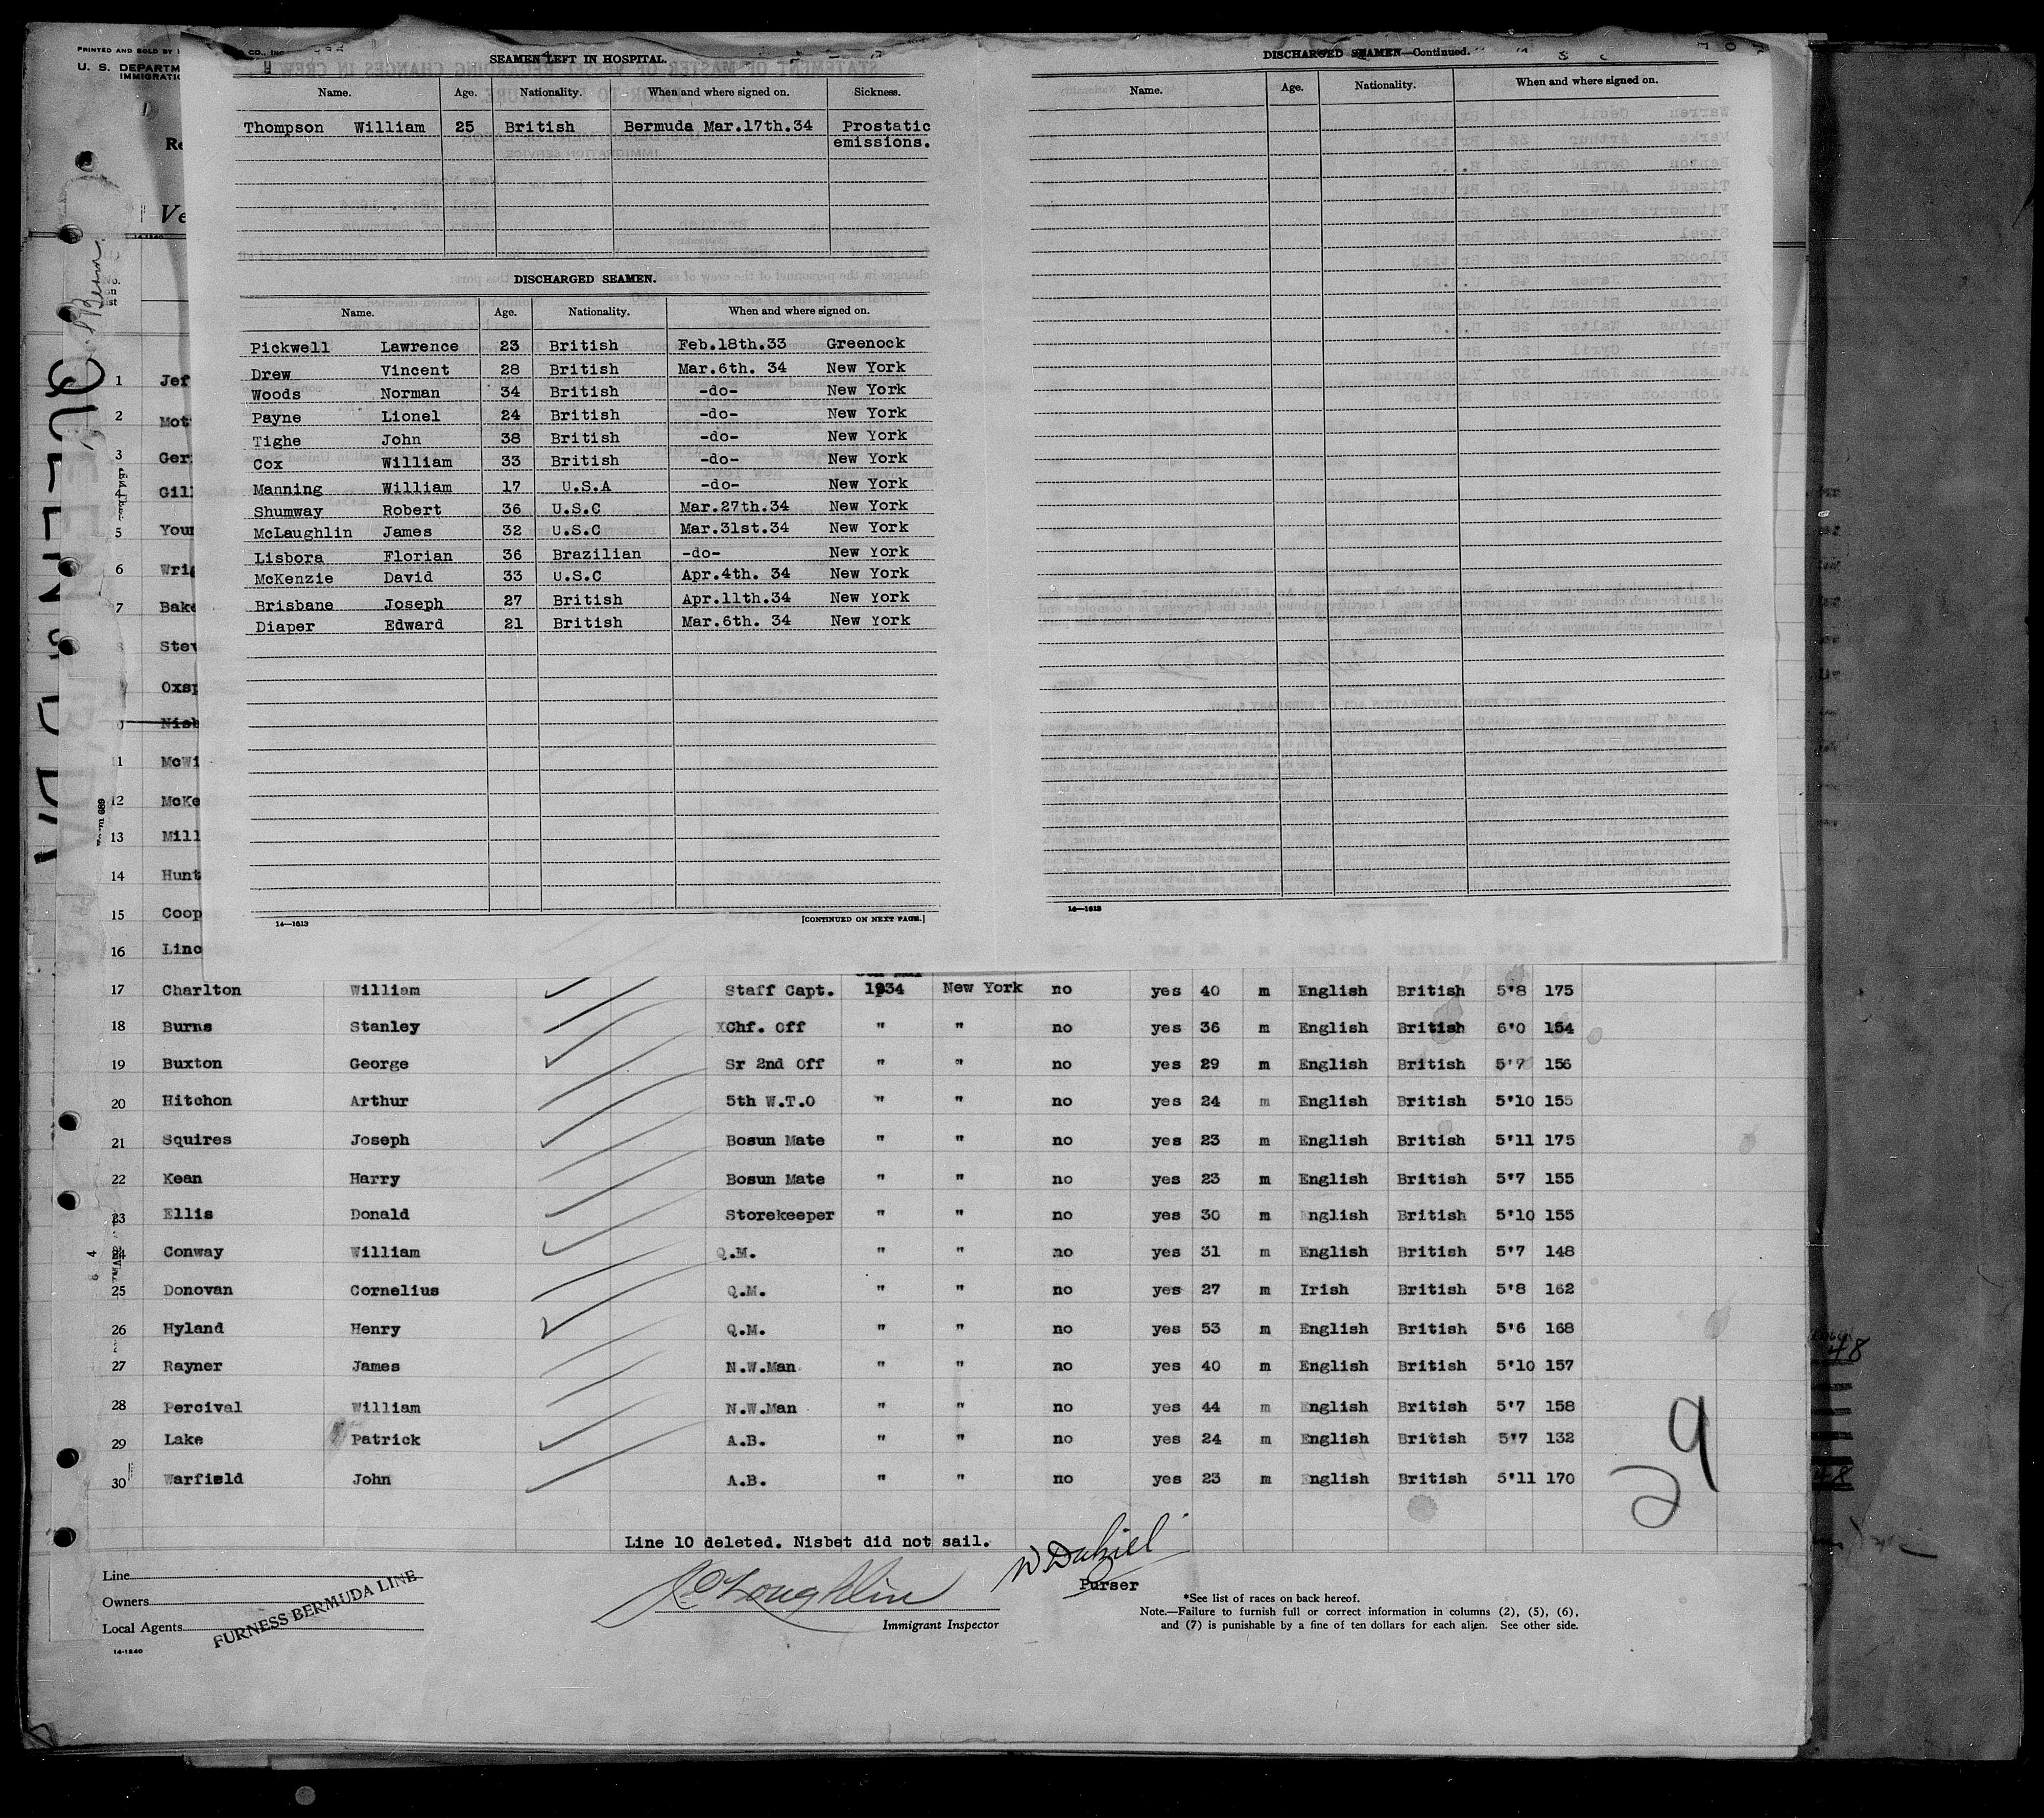 PRINTED AND SOLD BY
CO., INC
U. S. DEPARTM
IMMIGRATIO
Re
Ve
SEAMEN LEFT IN HOSPITAL.
Name. Age. Nationality. When and where signed on. Sickness.
Thompson William 25 British Bermuda Mar.17th.34 Prostatic
emissions.
DISCHARGED SEAMEN.
Name. Age. Nationality. When and where signed on.
Pickwell Lawrence 23 British Feb.18th.33 Greenock
Drew Vincent 28 British Mar.6th. 34 New York
Woods Norman 34 British -do- New York
Payne Lionel 24 British -do- New York
Tighe John 38 British -do- New York
Cox William 33 British -do- New York
Manning William 17 U.S.A -do- New York
Shumway Robert 36 U.S.C Mar.27th.34 New York
McLaughlin James 32 U.S.C Mar.31st.34 New York
Lisbora Florian 36 Brazilian -do- New York
McKenzie David 33 U.S.C Apr.4th. 34 New York
Brisbane Joseph 27 British Apr.11th.34 New York
Diaper Edward 21 British Mar.6th. 34 New York
14—1613 [CONTINUED ON NEXT PAGE.]
DISCHARGED SEAMEN—Continued.
Name. Age. Nationality. When and where signed on.
14—1613
1 Jef
2 Mot
3 Ger
4 Gill
5 Your
6 Wrig
7 Bake
8 Stev
Oxsp
Nisb
11 McWi
12 McKe
13 Mill
14 Hunt
15 Coop
16 Linc
17 Charlton William Staff Capt. 1934 New York no yes 40 m English British 5'8 175
18 Burns Stanley XChf. Off " " no yes 36 m English British 6'0 154
19 Buxton George Sr 2nd Off " " no yes 29 m English British 5'7 156
20 Hitchon Arthur 5th W.T.O " " no yes 24 m English British 5'10 155
21 Squires Joseph Bosun Mate " " no yes 23 m English British 5'11 175
22 Kean Harry Bosun Mate " " no yes 23 m English British 5'7 155
23 Ellis Donald Storekeeper " " no yes 30 m English British 5'10 155
24 Conway William Q.M. " " no yes 31 m English British 5'7 148
25 Donovan Cornelius Q.M. " " no yes 27 m Irish British 5'8 162
26 Hyland Henry Q.M. " " no yes 53 m English British 5'6 168
27 Rayner James N.W.Man " " no yes 40 m English British 5'10 157
28 Percival William N.W.Man " " no yes 44 m English British 5'7 158
29 Lake Patrick A.B. " " no yes 24 m English British 5'7 132
30 Warfield John A.B. " " no yes 23 m English British 5'11 170
29
Line 10 deleted. Nisbet did not sail.
Purser
Line
Owners
Local Agents
FURNESS BERMUDA LINE
14-1240
Immigrant Inspector
*See list of races on back hereof.
Note.—Failure to furnish full or correct information in columns (2), (5), (6),
and (7) is punishable by a fine of ten dollars for each alien. See other side.